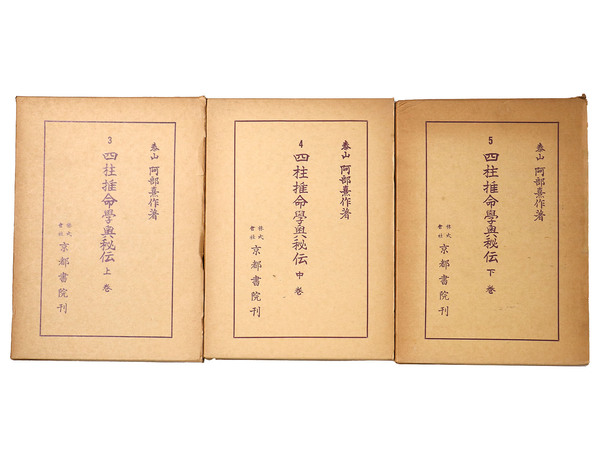 泰山 阿部熹作著
3
四柱推命學奥秘伝 上巻
株式会社 京都書院刊
泰山 阿部熹作著
4
四柱推命學奥秘伝 中巻
株式会社 京都書院刊
泰山 阿部熹作著
5
四柱推命學奥秘伝 下巻
株式会社 京都書院刊